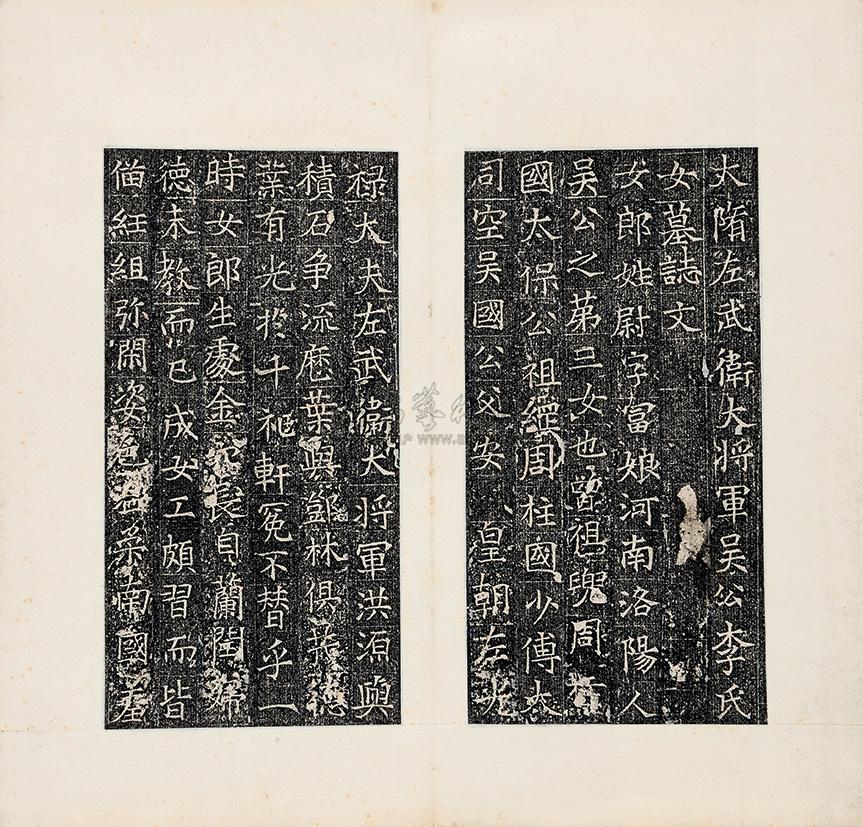 大隋左武衛大将軍吴公李氏
女墓誌文
女郎姓尉字冨娘河南洛陽人
吴公之苐三女也曾祖兜周柱
國太保公祖經周柱國少傅大
司空吴國公父安皇朝左光
禄大夫左武衛大将軍洪源與
積石争流歷葉與鄧林俱茂德
業有光於千祀軒冕不替乎一
時女郎生處金穴長自蘭閨婦
德未教而已成女工頗習而皆
俻紝組弥閑姿色益南國羞